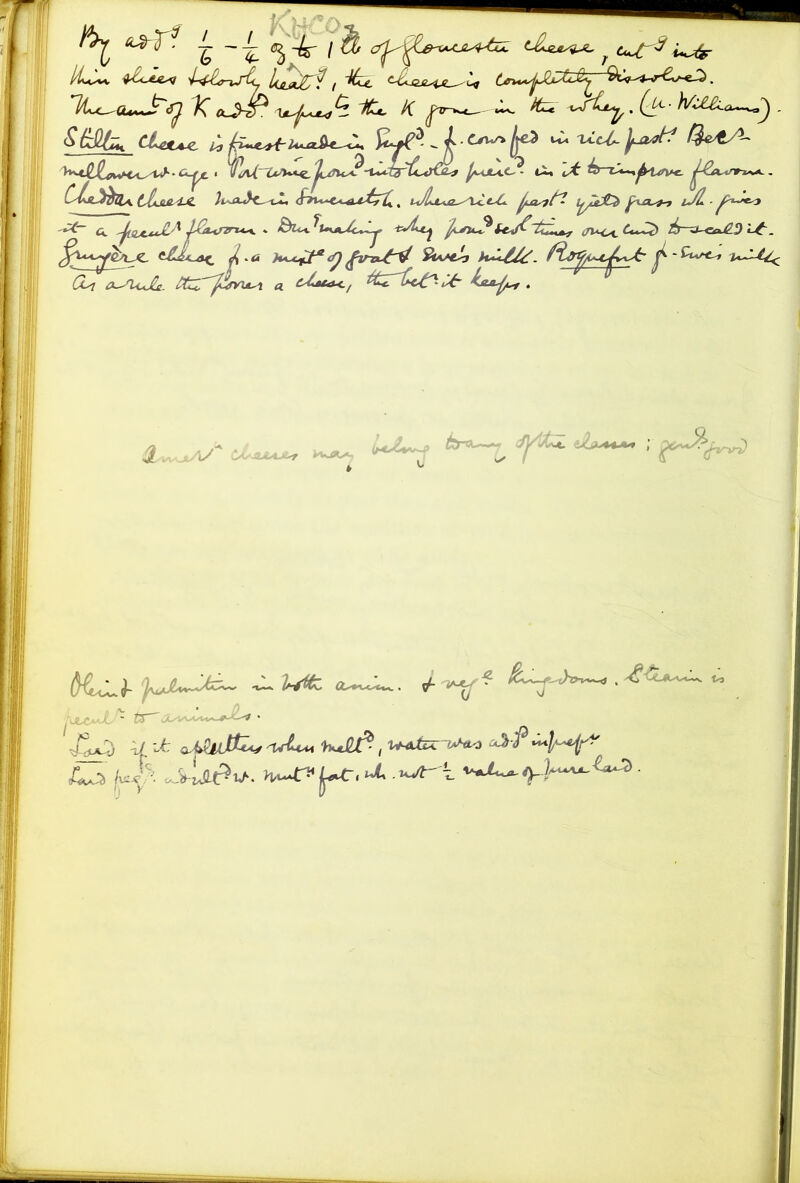 KHCO3
By add.g 1/6 – 1/4 oz to 1 lb of Gloucester cheese, cut.g into
thin slices & slowly heat.g, the cheese is completely dissolved.
The amt of K add.d repres.ts the K gone in the whey. (M. Williams).
Stilton Cheese is finest made in Engl.d – f. cows fed in rich past.s Bec.s
mellower w. age. Port wine pour.d into holes pierc.d in it to improve flavour.
Cheddar Cheese made in Somersetsh. where rich past.s yield grass wh. gives
it a pecul.r flavour. Dur.g making whey pour.d sev.l times over curd to scald it.
Gruyère cheese f. a mixt.e of goat's & Ewe's milk. Roquefort f. Ewe's milk
As a rule the poorer a cheese, the bet.r it keeps.
cheeses may belong to any of the classes; gen.y good
Olein & palmitin in both anim. & veg.e Kingdoms. Stearin is
pecul.r to animals.
Lard if it splutters when melt.d, water was add.d
Lard w. mutt.n fat, wh. value of pure lard.